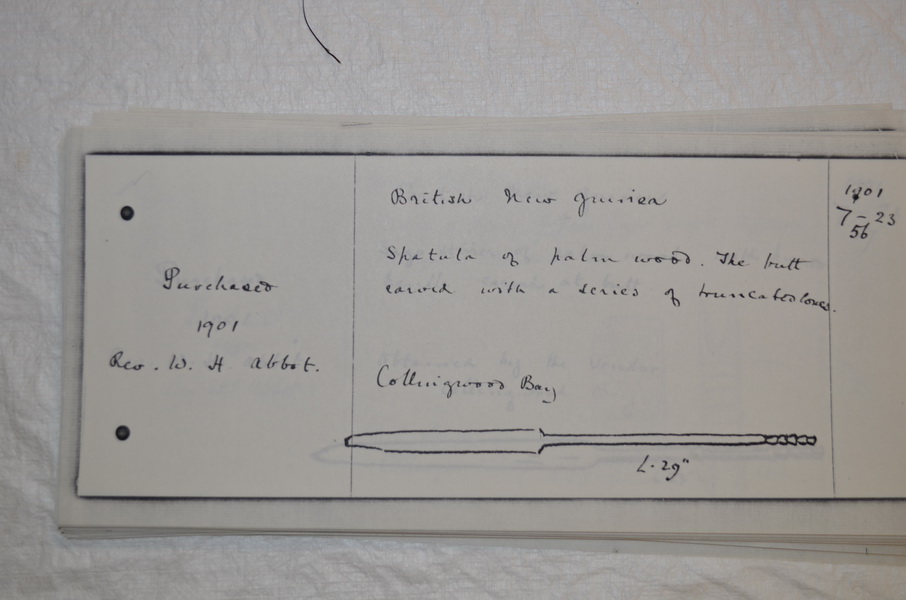 Purchased
1901
Rev. W. H Abbot.
British New Guinea
Spatula of palm wood. The butt
carved with a series of truncated cones.
Collingwood Bay
L. 29"
1901
7-23
56